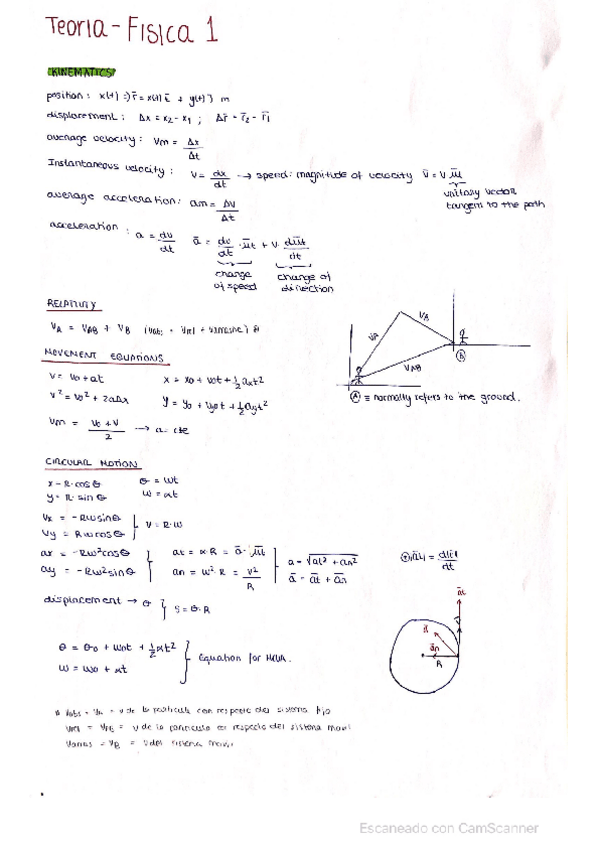 Teoria - FISICA 1
KINEMATICS
position: x(t) => r̄ = x(t) ī + y(t) j̄ m
displacement: Δx = x₂ - x₁ ; Δr̄ = r̄₂ - r̄₁
average velocity: Vm = Δx/Δt
Instantaneous velocity: V = dx/dt → speed: magnitude of velocity v̄ = v·ūt
unitary vector
tangent to the path
average acceleration: am = ΔV/Δt
acceleration: a = dv/dt ā = dv/dt · ūt + v · dūt/dt
change of speed
change of direction
RELATIVITY
VA = VAB + VB
VA
VB
VAB
B
A ≡ normally refers to the ground.
MOVEMENT EQUATIONS
V = Vo + at x = xo + vot + ½axt²
V² = Vo² + 2aΔx y = yo + vyot + ½ayt²
Vm = (Vo + V)/2 → a = cte
CIRCULAR MOTION
x = R·cosθ θ = wt
y = R·sinθ w = αt
Vx = -Rwsinθ
Vy = Rwcosθ } V = R·w
ax = -Rw²cosθ at = α·R = ā·ūt
ay = -Rw²sinθ an = w²·R = v²/R
a = √(at² + an²)
ā = āt + ān
displacement → θ } S = θ·R
āt
ā
ān
R
θ = θo + wot + ½αt²
w = wo + αt } Equation for MCUA.
Vabs = VA = v de la particula con respecto del sistema fijo
= v de la particula con respecto del sistema movil
= VB = v del sistema movil
Escaneado con CamScanner